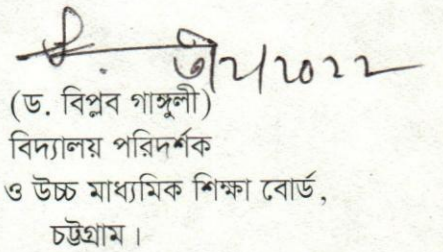 ৩/২/২০২২
(ড. বিপ্লব গাঙ্গুলী)
বিদ্যালয় পরিদর্শক
ও উচ্চ মাধ্যমিক শিক্ষা বোর্ড,
চট্টগ্রাম।